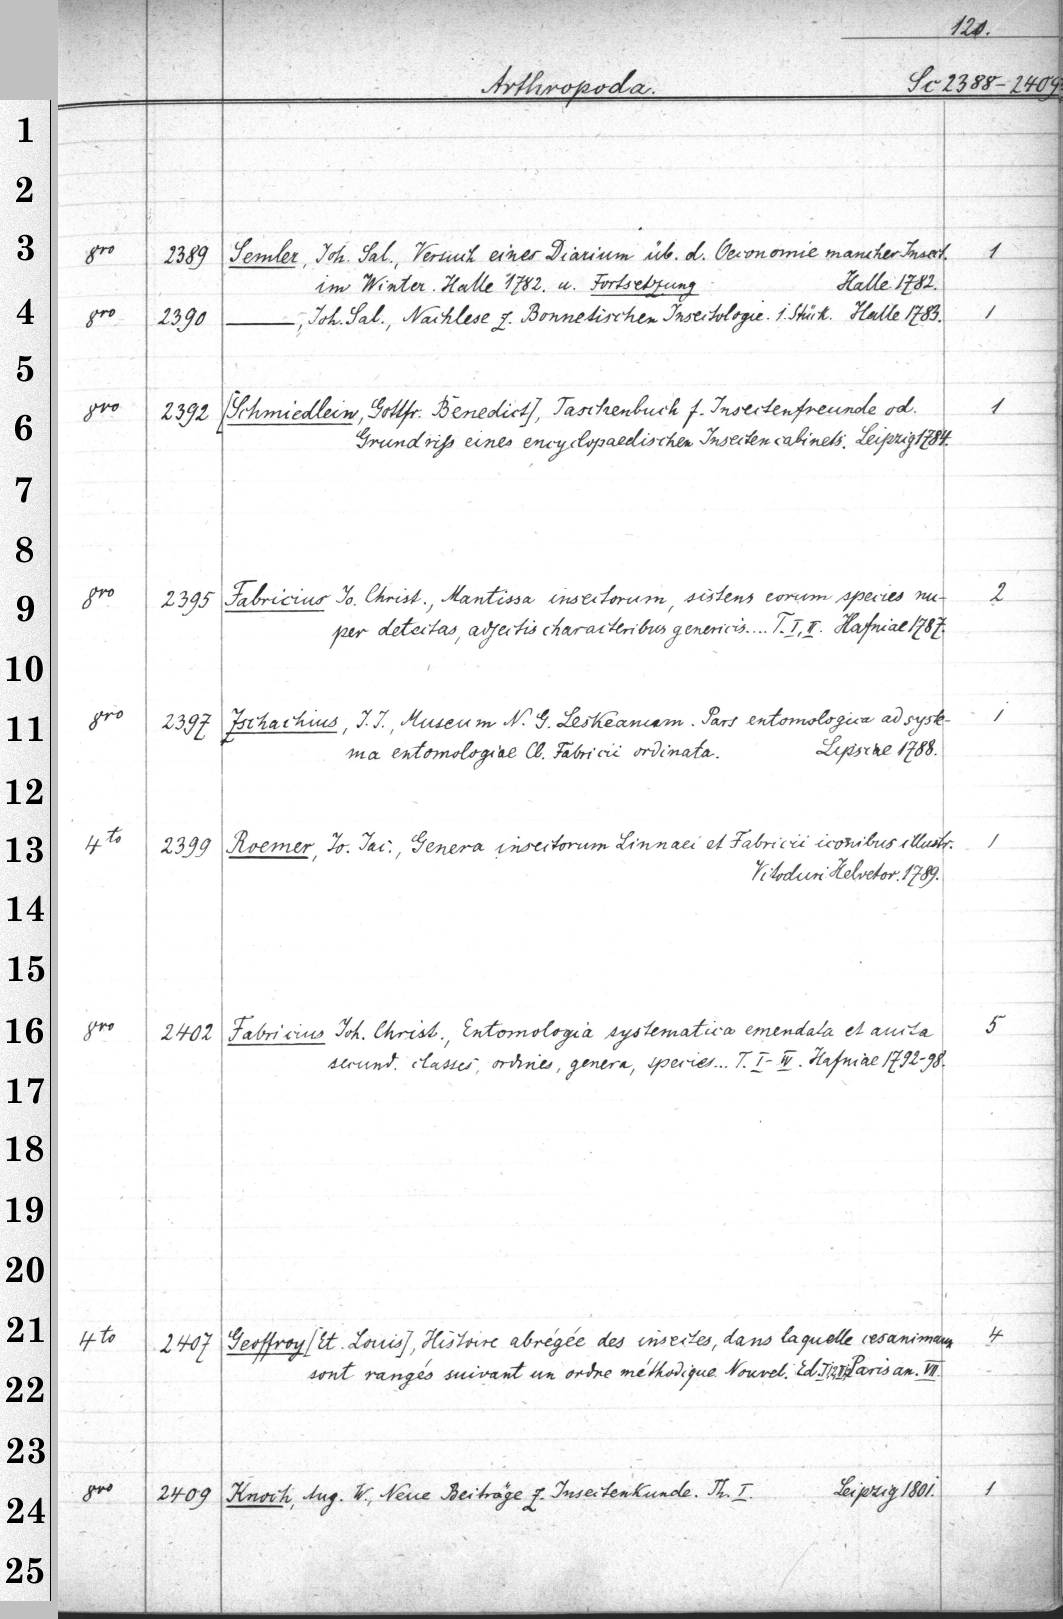 120.
Arthropoda. Sc 2388-2409
1
2
3 8vo 2389 Semler, Joh. Sal., Versuch eines Diarium üb. d. Oeconomie mancher Insect. 1
im Winter. Halle 1782. u. Fortsetzung Halle 1782.
4 8vo 2390 ———, Joh. Sal., Nachlese z. Bonnetischen Insectologie. 1. Stück. Halle 1783. 1
5
6 8vo 2392 [Schmiedlein, Gottfr. Benedict], Taschenbuch f. Insectenfreunde od. 1
Grundriss eines encyclopaedischen Insectencabinets. Leipzig 1784.
7
8
9 8vo 2395 Fabricius Jo. Christ., Mantissa insectorum, sistens eorum species nu- 2
per detectas, adjectis characteribus genericis.... T. I, II. Hafniae 1787.
10
11 8vo 2397 Zschachius, J. J., Museum N. G. Leskeanum. Pars entomologica ad syste- 1
ma entomologiae Cl. Fabricii ordinata. Lipsiae 1788.
12
13 4to 2399 Roemer, Jo. Jac., Genera insectorum Linnaei et Fabricii iconibus illustr. 1
Vitoduri Helvetor. 1789.
14
15
16 8vo 2402 Fabricius Joh. Christ., Entomologia systematica emendata et aucta 5
secund. classes, ordines, genera, species... T. I-IV. Hafniae 1792-98.
17
18
19
20
21 4to 2407 Geoffroy [Et. Louis], Histoire abrégée des insectes, dans laquelle ces animaux 4
22 sont rangés suivant un ordre méthodique. Nouvel. Ed. Paris an. VII.
23
24 8vo 2409 Knoch, Aug. W., Neue Beiträge z. Insectenkunde. Th. I. Leipzig 1801. 1
25